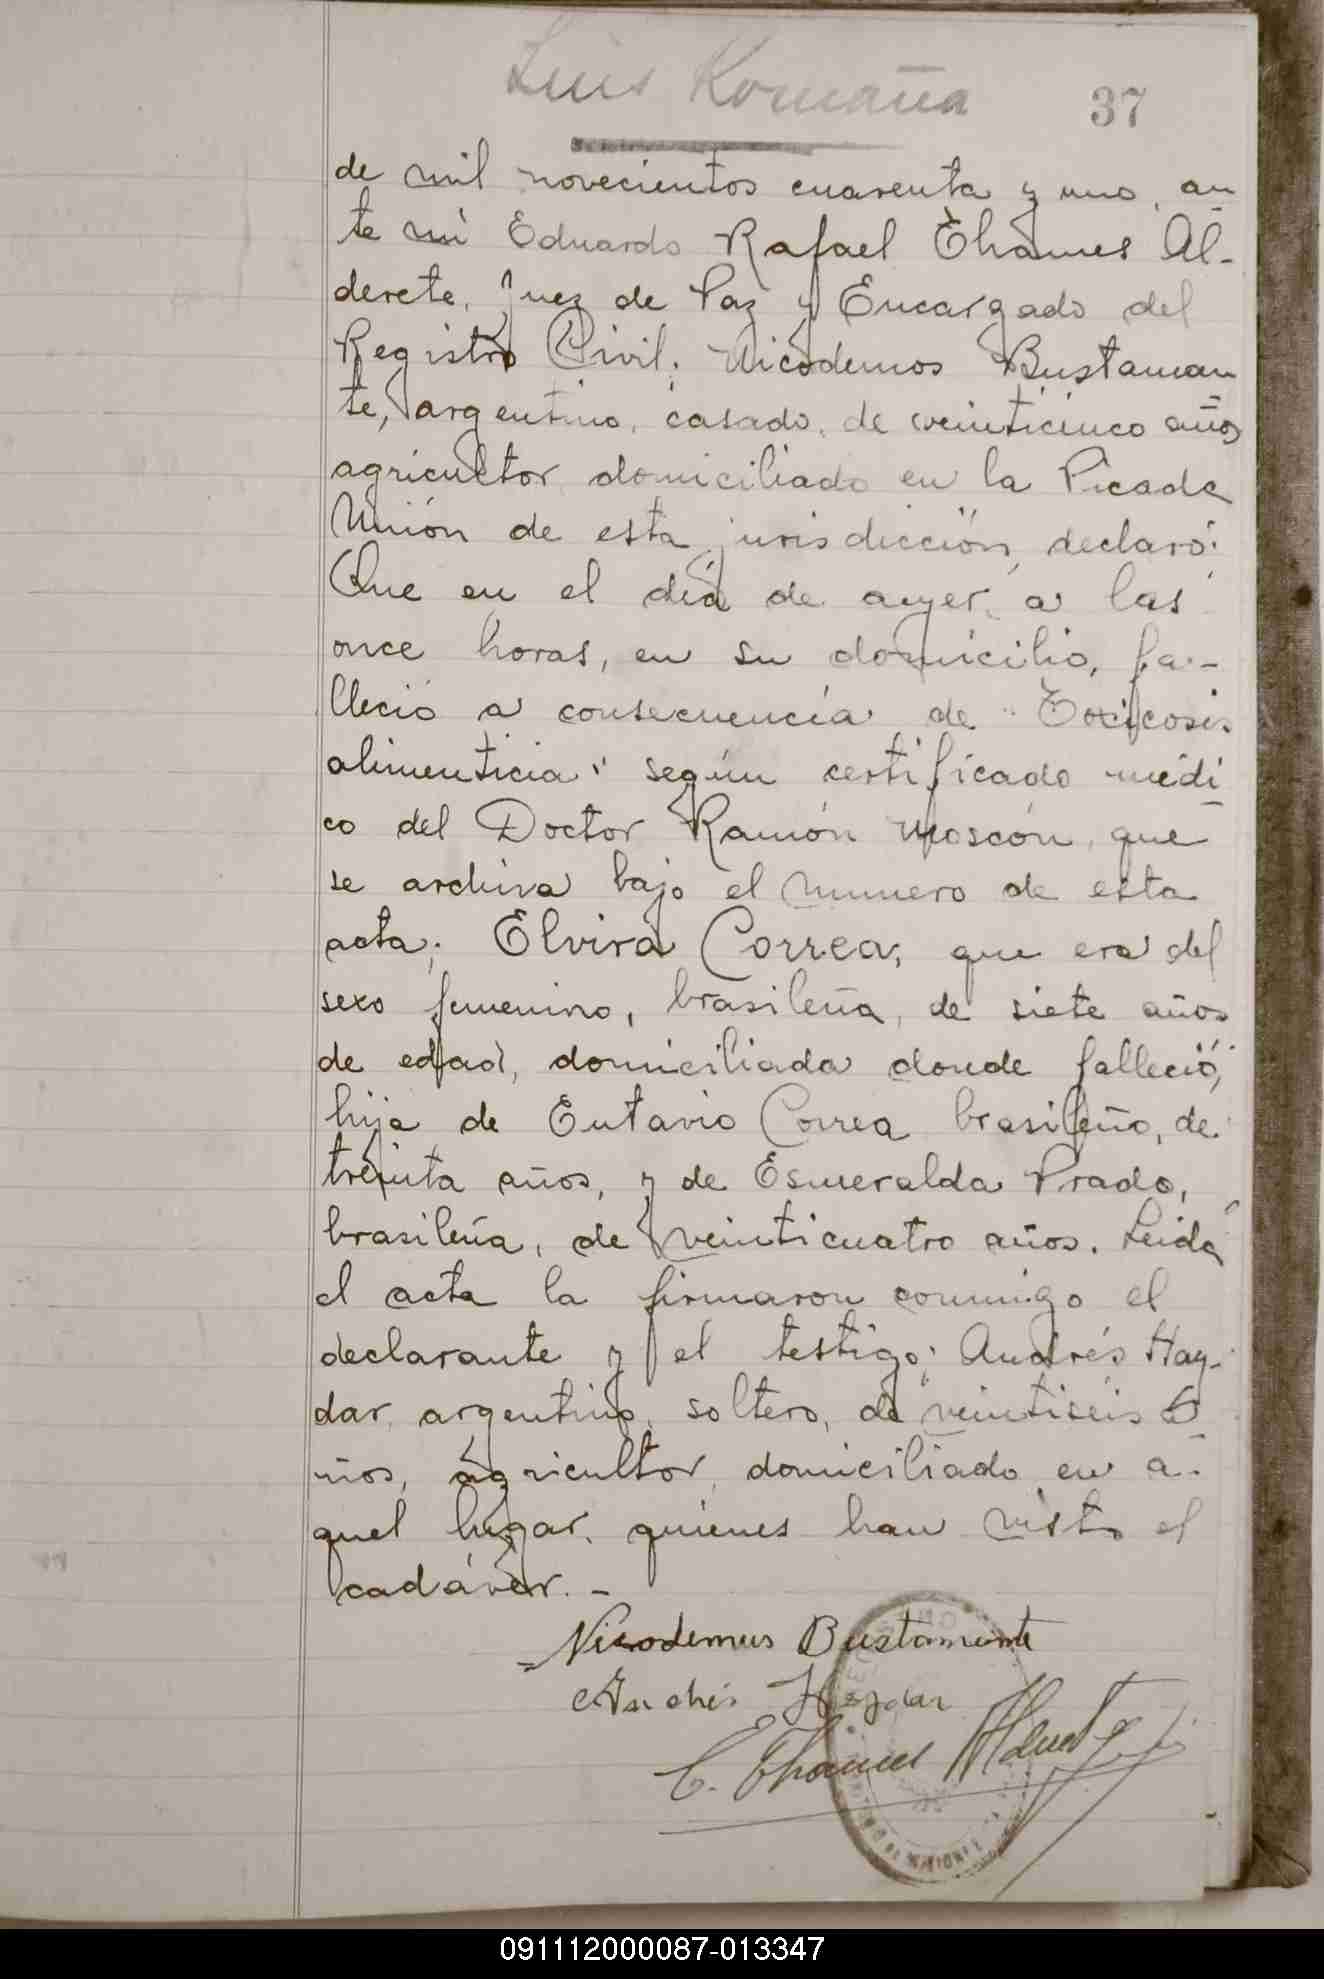 Luis Romaña
37
de mil novecientos cuarenta y uno, an
te mi Eduardo Rafael Thames Al-
derete, Juez de Paz y Encargado del
Registro Civil; Nicodemos Bustaman
te, argentino, casado, de veinticinco años
agricultor domiciliado en la Picada
Unión de esta jurisdicción, declaró:
Que en el día de ayer, a las
once horas, en su domicilio, fa-
lleció a consecuencia de "Toxicosis
alimenticia" según certificado médi
co del Doctor Ramón Moscón, que
se archiva bajo el numero de esta
acta; Elvira Correa; que era del
sexo femenino, brasileña, de siete años
de edad, domiciliada donde falleció,
hija de Eutavio Correa brasileño, de
treinta años, y de Esmeralda Prado,
brasileña, de veinticuatro años. Leida
el acta la firmaron conmigo el
declarante y el testigo: Andrés Hay-
dar, argentino, soltero, de veintiseis a
ños, agricultor, domiciliado en a-
quel lugar, quienes han visto el
cadáver. -
Nicodemus Bustamante
Andrés Haydar
E. Thames Alderete
091112000087-013347